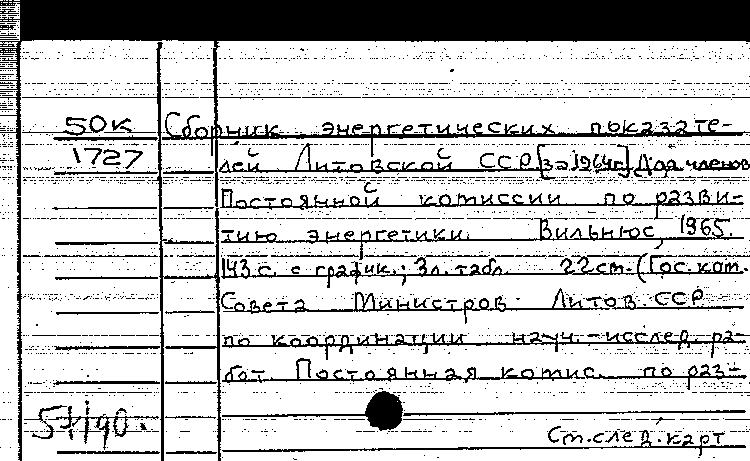 50К Сборник энергетических показате-
1727 лей Литовской ССР [за 1964г.] Для членов
Постоянной комиссии по разви-
тию энергетики. Вильнюс, 1965.
143 с. с график.; 3л. табл. 22 см. (Гос. ком.
Совета Министров Литов. ССР
по координации науч.-исслед. ра-
бот. Постоянная комис. по раз-
См. след. карт